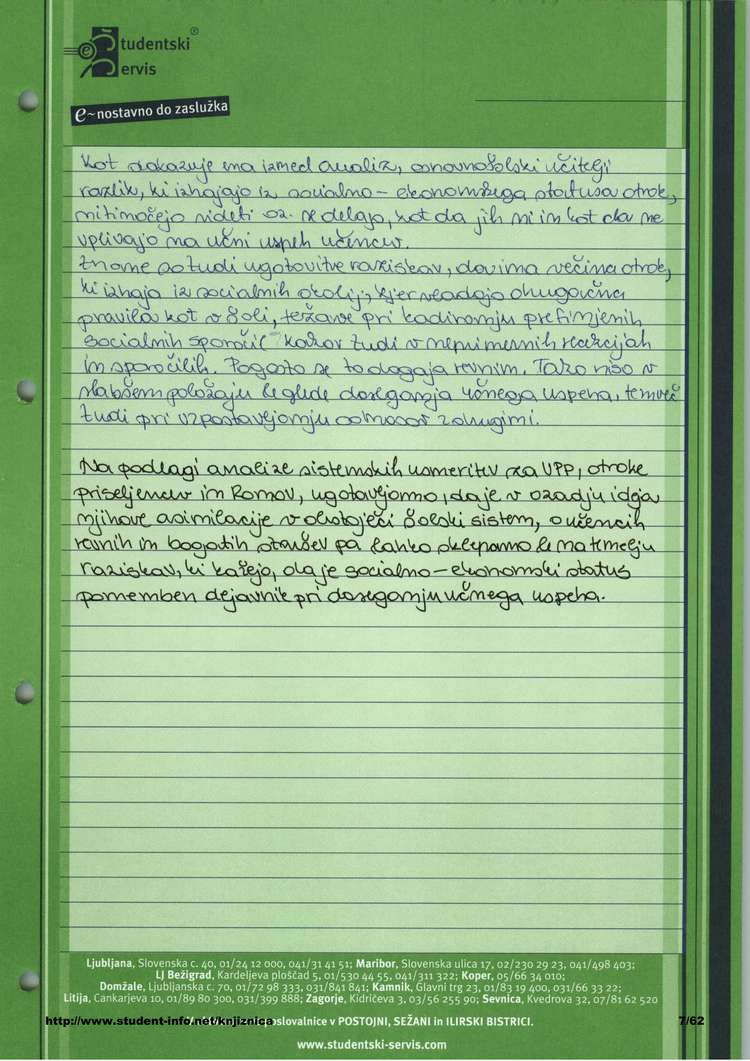 Študentski®
Servis
e~nostavno do zaslužka
Kot dokazuje ena izmed analiz, osnovnošolski učitelji
razlik, ki izhajajo iz socialno – ekonomskega statusa otrok,
niti nočejo videti oz. se delajo, kot da jih ni in kot da ne
vplivajo na učni uspeh učencev.
Znane so tudi ugotovitve raziskav, da ima večina otrok,
ki izhaja iz socialnih okolij, kjer vladajo drugačna
pravila kot v šoli, težave pri kodiranju prefinjenih
socialnih sporočil kakor tudi v neprimernih reakcijah
in sporočilih. Pogosto se to dogaja revnim. Tako niso v
slabšem položaju le glede doseganja učnega uspeha, temveč
tudi pri vzpostavljanju odnosov z drugimi.
Na podlagi analize sistemskih usmeritev za UPP, otroke
priseljencev in Romov, ugotavljamo, da je v ozadju ideja
njihove asimilacije v obstoječi šolski sistem, o učencih
revnih in bogatih staršev pa lahko sklepamo le na temelju
raziskav, ki kažejo, da je socialno – ekonomski status
pomemben dejavnik pri doseganju učnega uspeha.
Ljubljana, Slovenska c. 40, 01/24 12 000, 041/31 41 51; Maribor, Slovenska ulica 17, 02/230 29 23, 041/498 403;
LJ Bežigrad, Kardeljeva ploščad 5, 01/530 44 55, 041/311 322; Koper, 05/66 34 010;
Domžale, Ljubljanska c. 70, 01/72 98 333, 031/841 841; Kamnik, Glavni trg 23, 01/83 19 400, 031/66 33 22;
Litija, Cankarjeva 10, 01/89 80 300, 031/399 888; Zagorje, Kidričeva 3, 03/56 255 90; Sevnica, Kvedrova 32, 07/81 62 520
http://www.student-info.net/knjiznica poslovalnice v POSTOJNI, SEŽANI in ILIRSKI BISTRICI. 7/62
www.studentski-servis.com